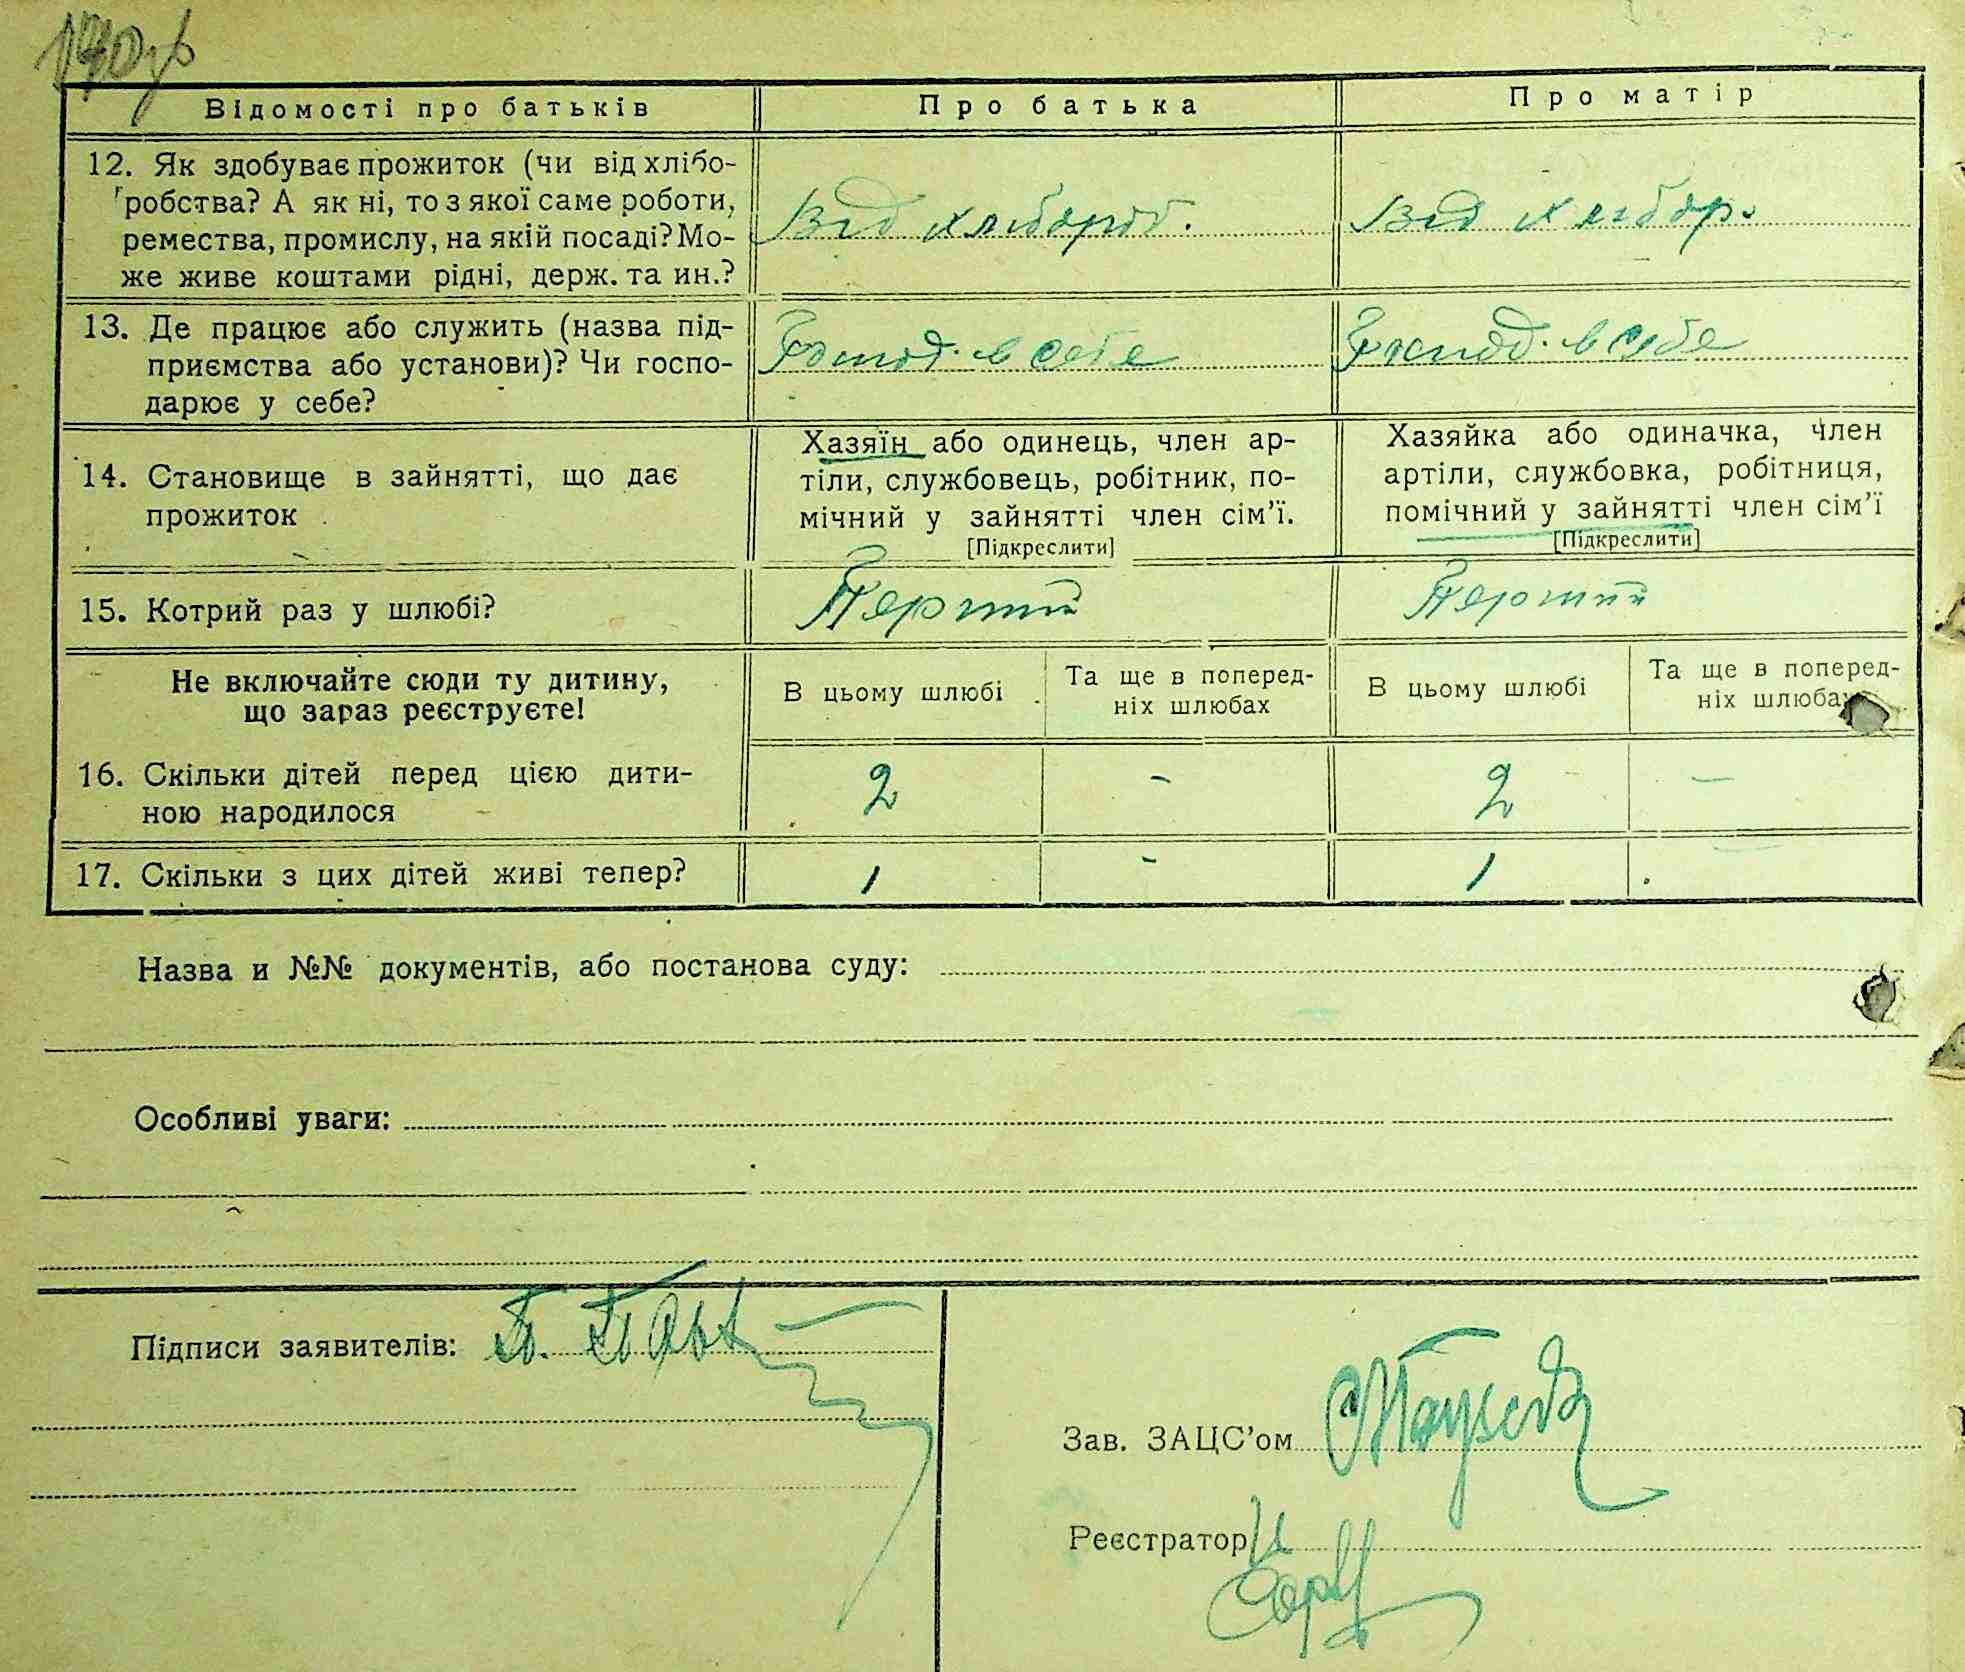 170зв
Відомості про батьків
Про батька
Про матір
12. Як здобуває прожиток (чи від хлібо-
робства? А як ні, то з якої саме роботи,
ремества, промислу, на якій посаді? Мо-
же живе коштами рідні, держ. та ин.?
Від хлібороб.
Від хлібор.
13. Де працює або служить (назва під-
приємства або установи)? Чи госпо-
дарює у себе?
Господ. в себе
Господ. в себе
14. Становище в зайнятті, що дає
прожиток
Хазяїн або одинець, член ар-
тіли, службовець, робітник, по-
мічний у зайнятті член сім'ї.
[Підкреслити]
Хазяйка або одиначка, член
артіли, службовка, робітниця,
помічний у зайнятті член сім'ї
[Підкреслити]
15. Котрий раз у шлюбі?
Перший
Перший
Не включайте сюди ту дитину,
що зараз реєструєте!
В цьому шлюбі
Та ще в поперед-
ніх шлюбах
В цьому шлюбі
Та ще в поперед-
ніх шлюбах
16. Скільки дітей перед цією дити-
ною народилося
2 - 2 -
17. Скільки з цих дітей живі тепер?
1 - 1
Назва и №№ документів, або постанова суду:
Особливі уваги:
Підписи заявителів:
Зав. ЗАЦС'ом
Реєстратор